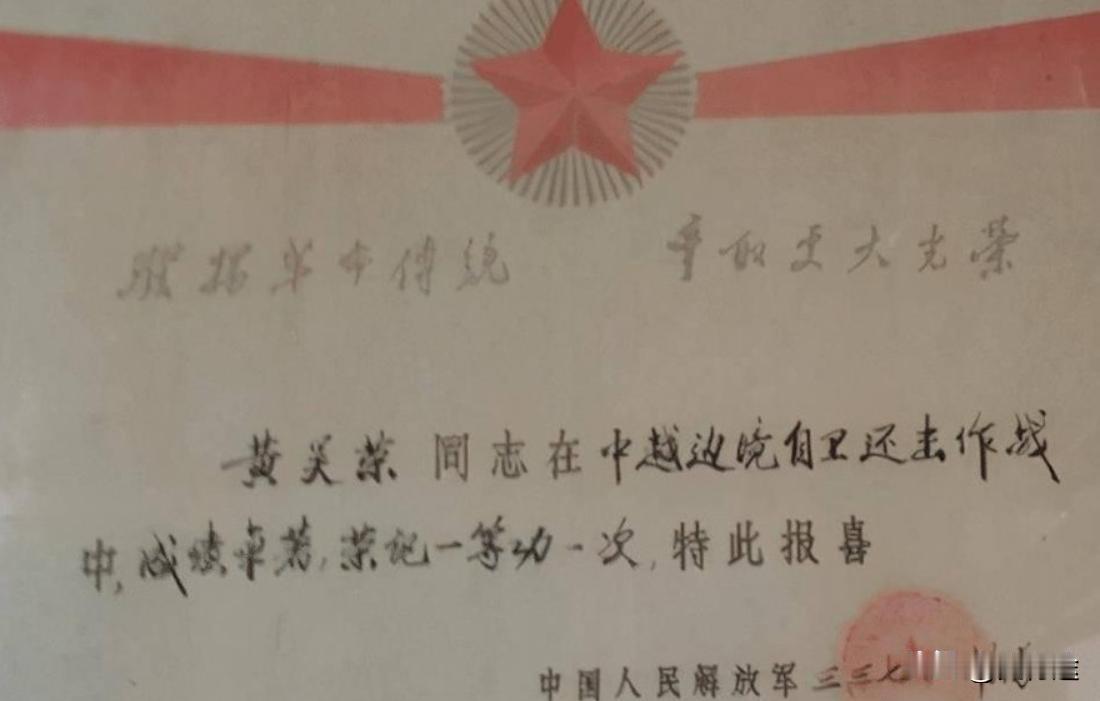 發扬革命傳统 争取更大光荣
黄关荣同志在中越边境自卫还击作战
中,成绩卓著,荣记一等功一次,特此报喜
中国人民解放军三三七